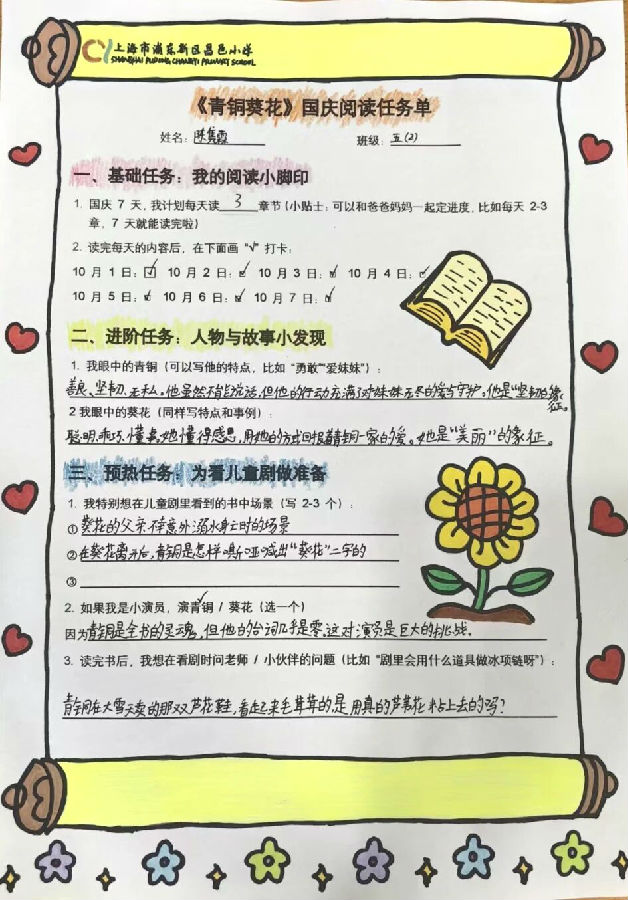 上海市浦东新区昌邑小学
SHANGHAI PUDONG CHANGYI PRIMARY SCHOOL
《青铜葵花》国庆阅读任务单
姓名：陈 霞 班级：五(2)
一、基础任务：我的阅读小脚印
1. 国庆 7 天，我计划每天读 3 章节（小贴士：可以和爸爸妈妈一起定进度，比如每天 2-3
章，7 天就能读完啦）
2. 读完每天的内容后，在下面画 “√” 打卡：
10 月 1 日：☑ 10 月 2 日：☑ 10 月 3 日：☑ 10 月 4 日：☑
10 月 5 日：☑ 10 月 6 日：☑ 10 月 7 日：☑
二、进阶任务：人物与故事小发现
1. 我眼中的青铜（可以写他的特点，比如 “勇敢”“爱妹妹”）：
善良、坚韧、无私。他虽然不能说话，但他的行动充满了对妹妹无尽的爱与守护。他是“坚韧”的象
征。
2 我眼中的葵花（同样写特点和事例）：
聪明、乖巧、懂事。她懂得感恩，用她的方式回报着青铜一家的爱。她是“美丽”的象征。
三、预热任务：为看儿童剧做准备
1. 我特别想在儿童剧里看到的书中场景（写 2-3 个）：
①葵花的父亲在意外溺水身亡时的场景
②在葵花离开后，青铜是怎样嘶哑喊出“葵花”二字的
③
2. 如果我是小演员，演青铜 / 葵花（选一个）
因为青铜是全书的灵魂，但他的台词几乎是零，这对演员是巨大的挑战。
3. 读完书后，我想在看剧时问老师 / 小伙伴的问题（比如 “剧里会用什么道具做冰项链呀”）：
青铜在大雪天卖的那双芦花鞋，看起来毛茸茸的是用真的芦苇花粘上去的吗？